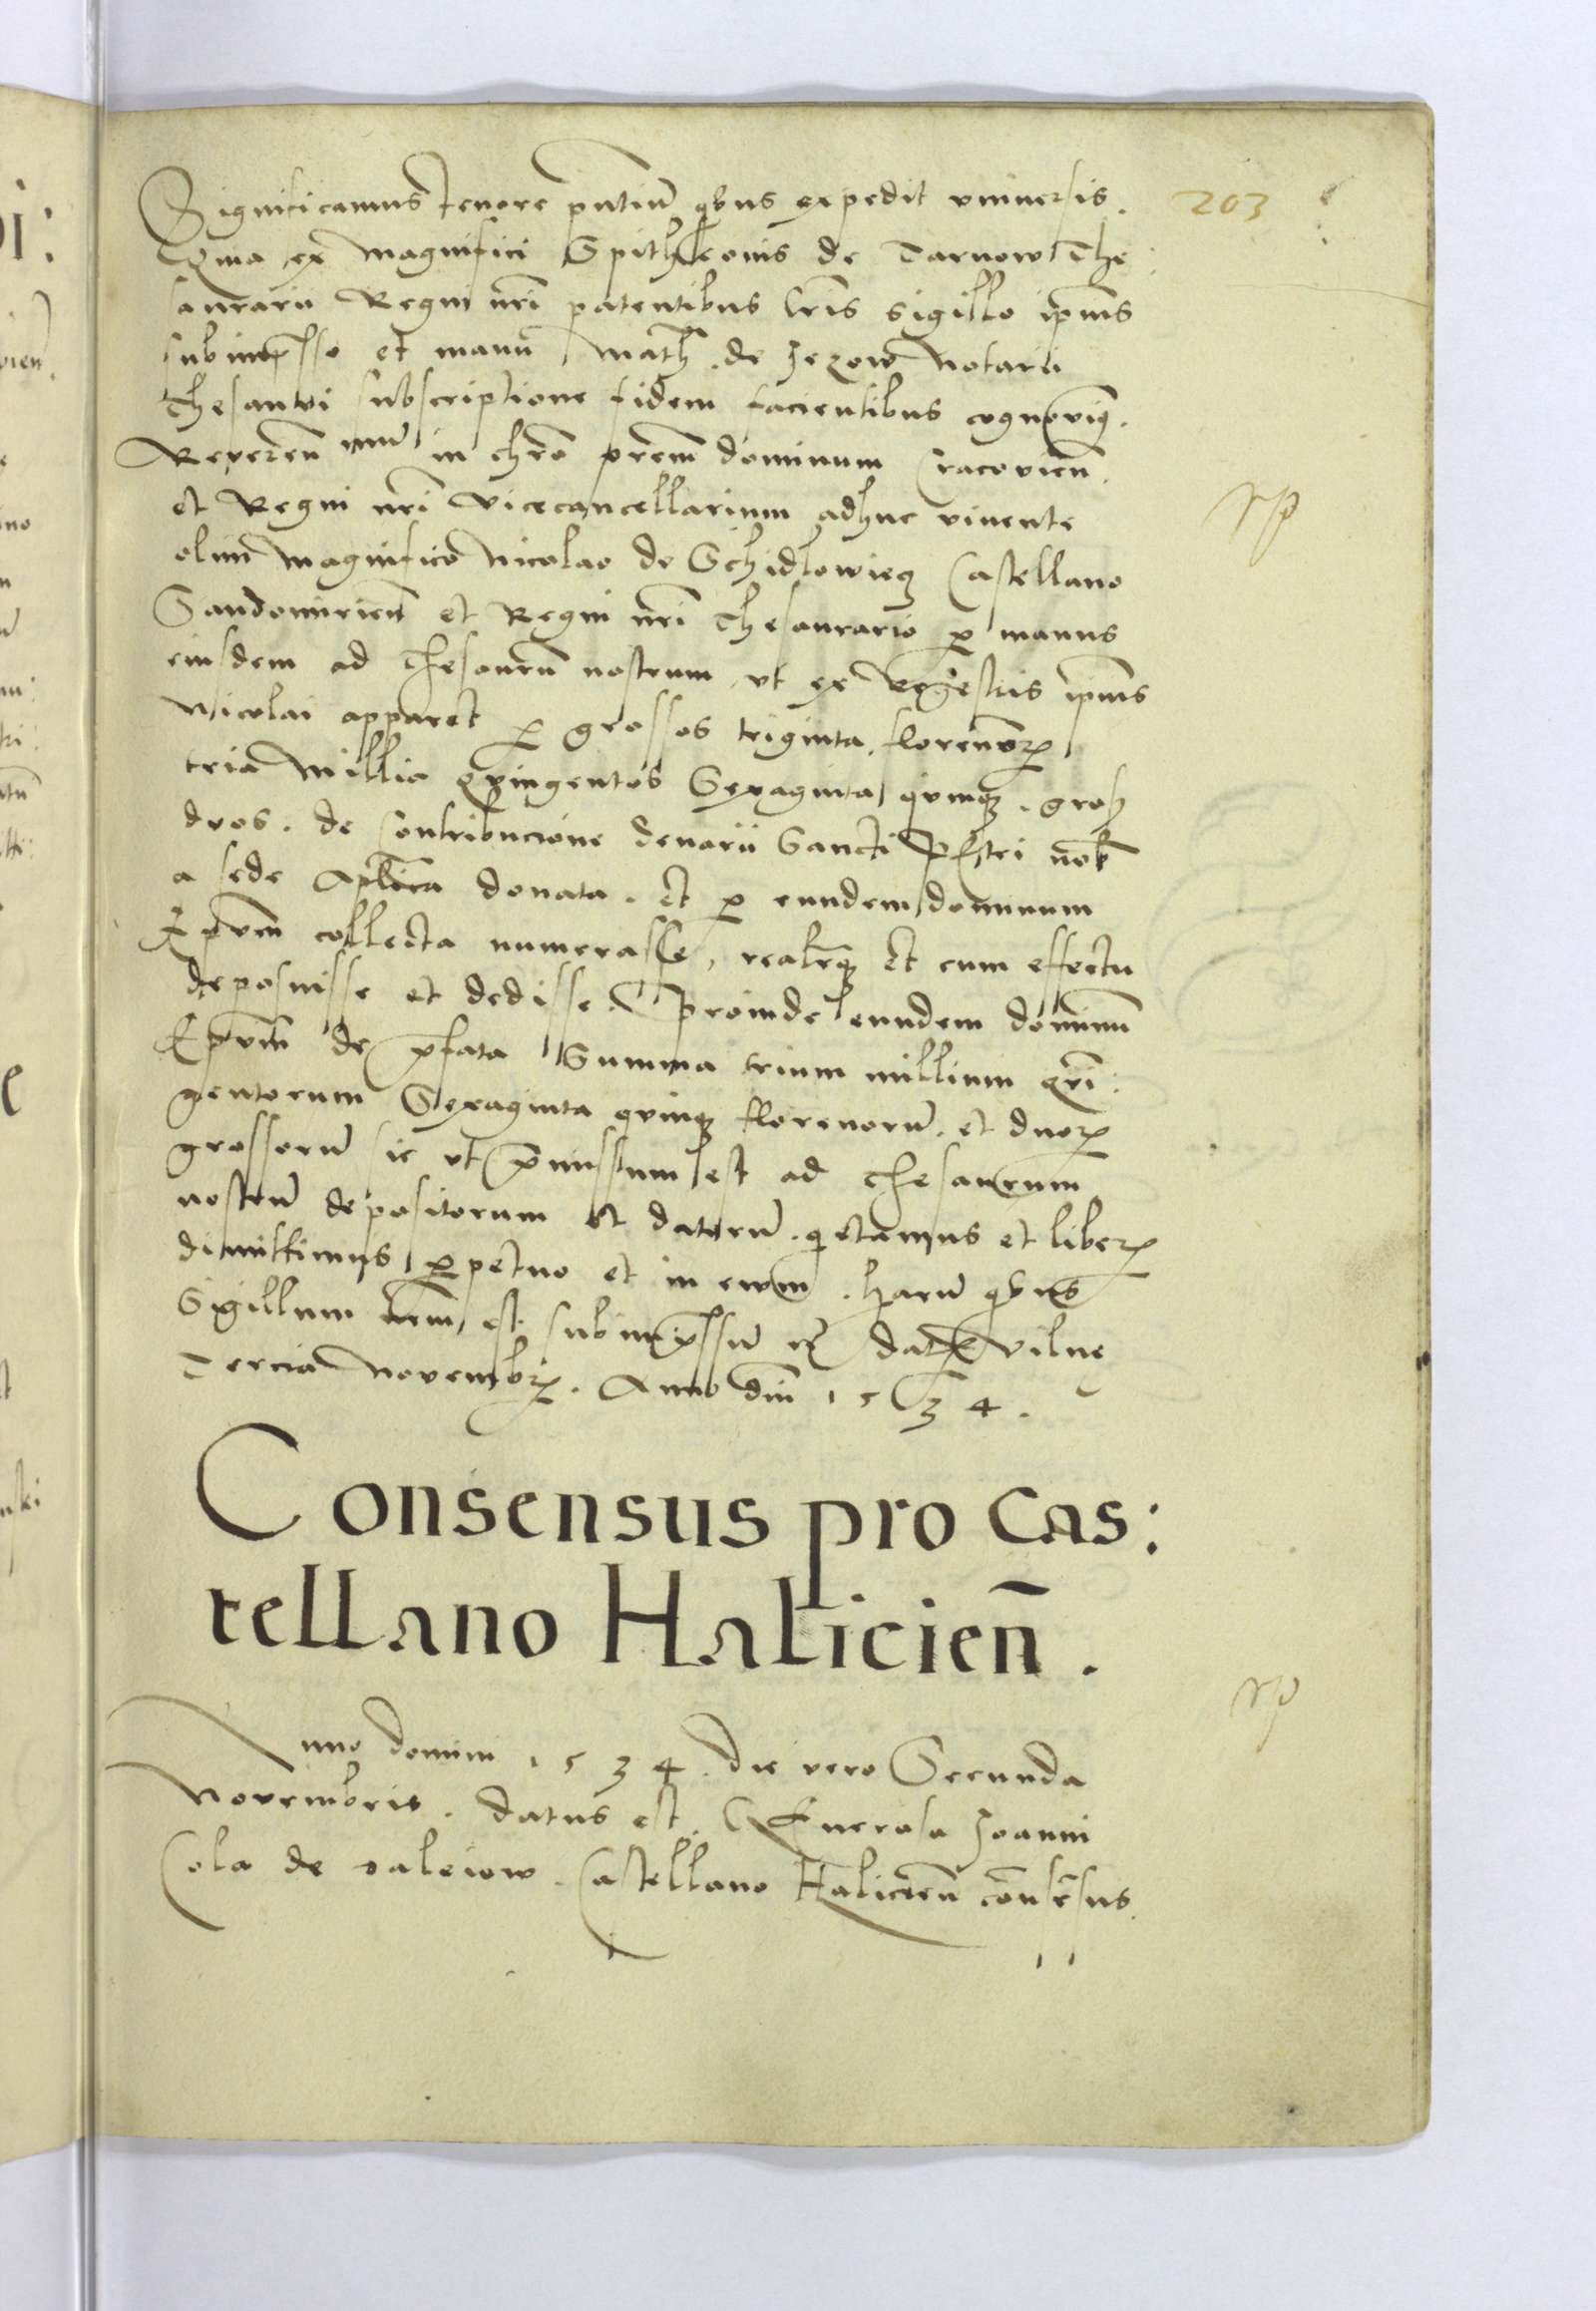 Significamus tenore pñtiũ qbus expedit vniuersis. 203
Quia ex magnifici Spithkonis de Tarnow The
saurarii Regni nři patentibus lr̃is sigillo ipius
subimp̃sso et manu Math. de Jezow Notarii
Thesauri subscriptione fidem facientibus cognouimꝰ.
Reueren mũ in chr̃o pr̃em dominum Cracovieñ.
et Regni nři Vicecancellarium adhuc viuente
olim Magnifico Nicolao de Schidlowiecz Castellano
Sandomirieñ et Regni nři Thesaurario ꝑ manus
eiusdem ad Thesaurũ nostrum vt ex Regestris ipius
Nicolai apparet ꝑ grossos triginta florenorꝝ
tria Millia quingentos Sexaginta quinqꝫ. gross
duos. de Contribucione denarii Sancti Petri nob
a sede Aplica donata. et ꝑ eundem dominum
Epũm collecta numerasse, realrqꝫ et cum effectu
deposuisse et dedisse. Proinde eundem dominũ
Epũm de p̃fata Summa trium millium qui:
gentorum Sexaginta quinqꝫ florenorũ. et duorꝝ
grossorũ sic vt p̃missum est ad Thesaurum
nostrũ depositorum et datorũ. qictamus et liberꝝ
dimittimus ꝑpetuo et in ewm. harũ qbus
Sigillum nr̃m est subimp̃ssũ rꝫ datꝫ Vilne
Tercia Novembrꝝ. Anno dñi 1534.
Consensus pro Cas:
tellano Halicieñ.
Anno domini 1534. die vero Secunda
Novembris. datus est Generoso Joanni
Cola de Daleiow. Castellano Halicieñ consẽsus.